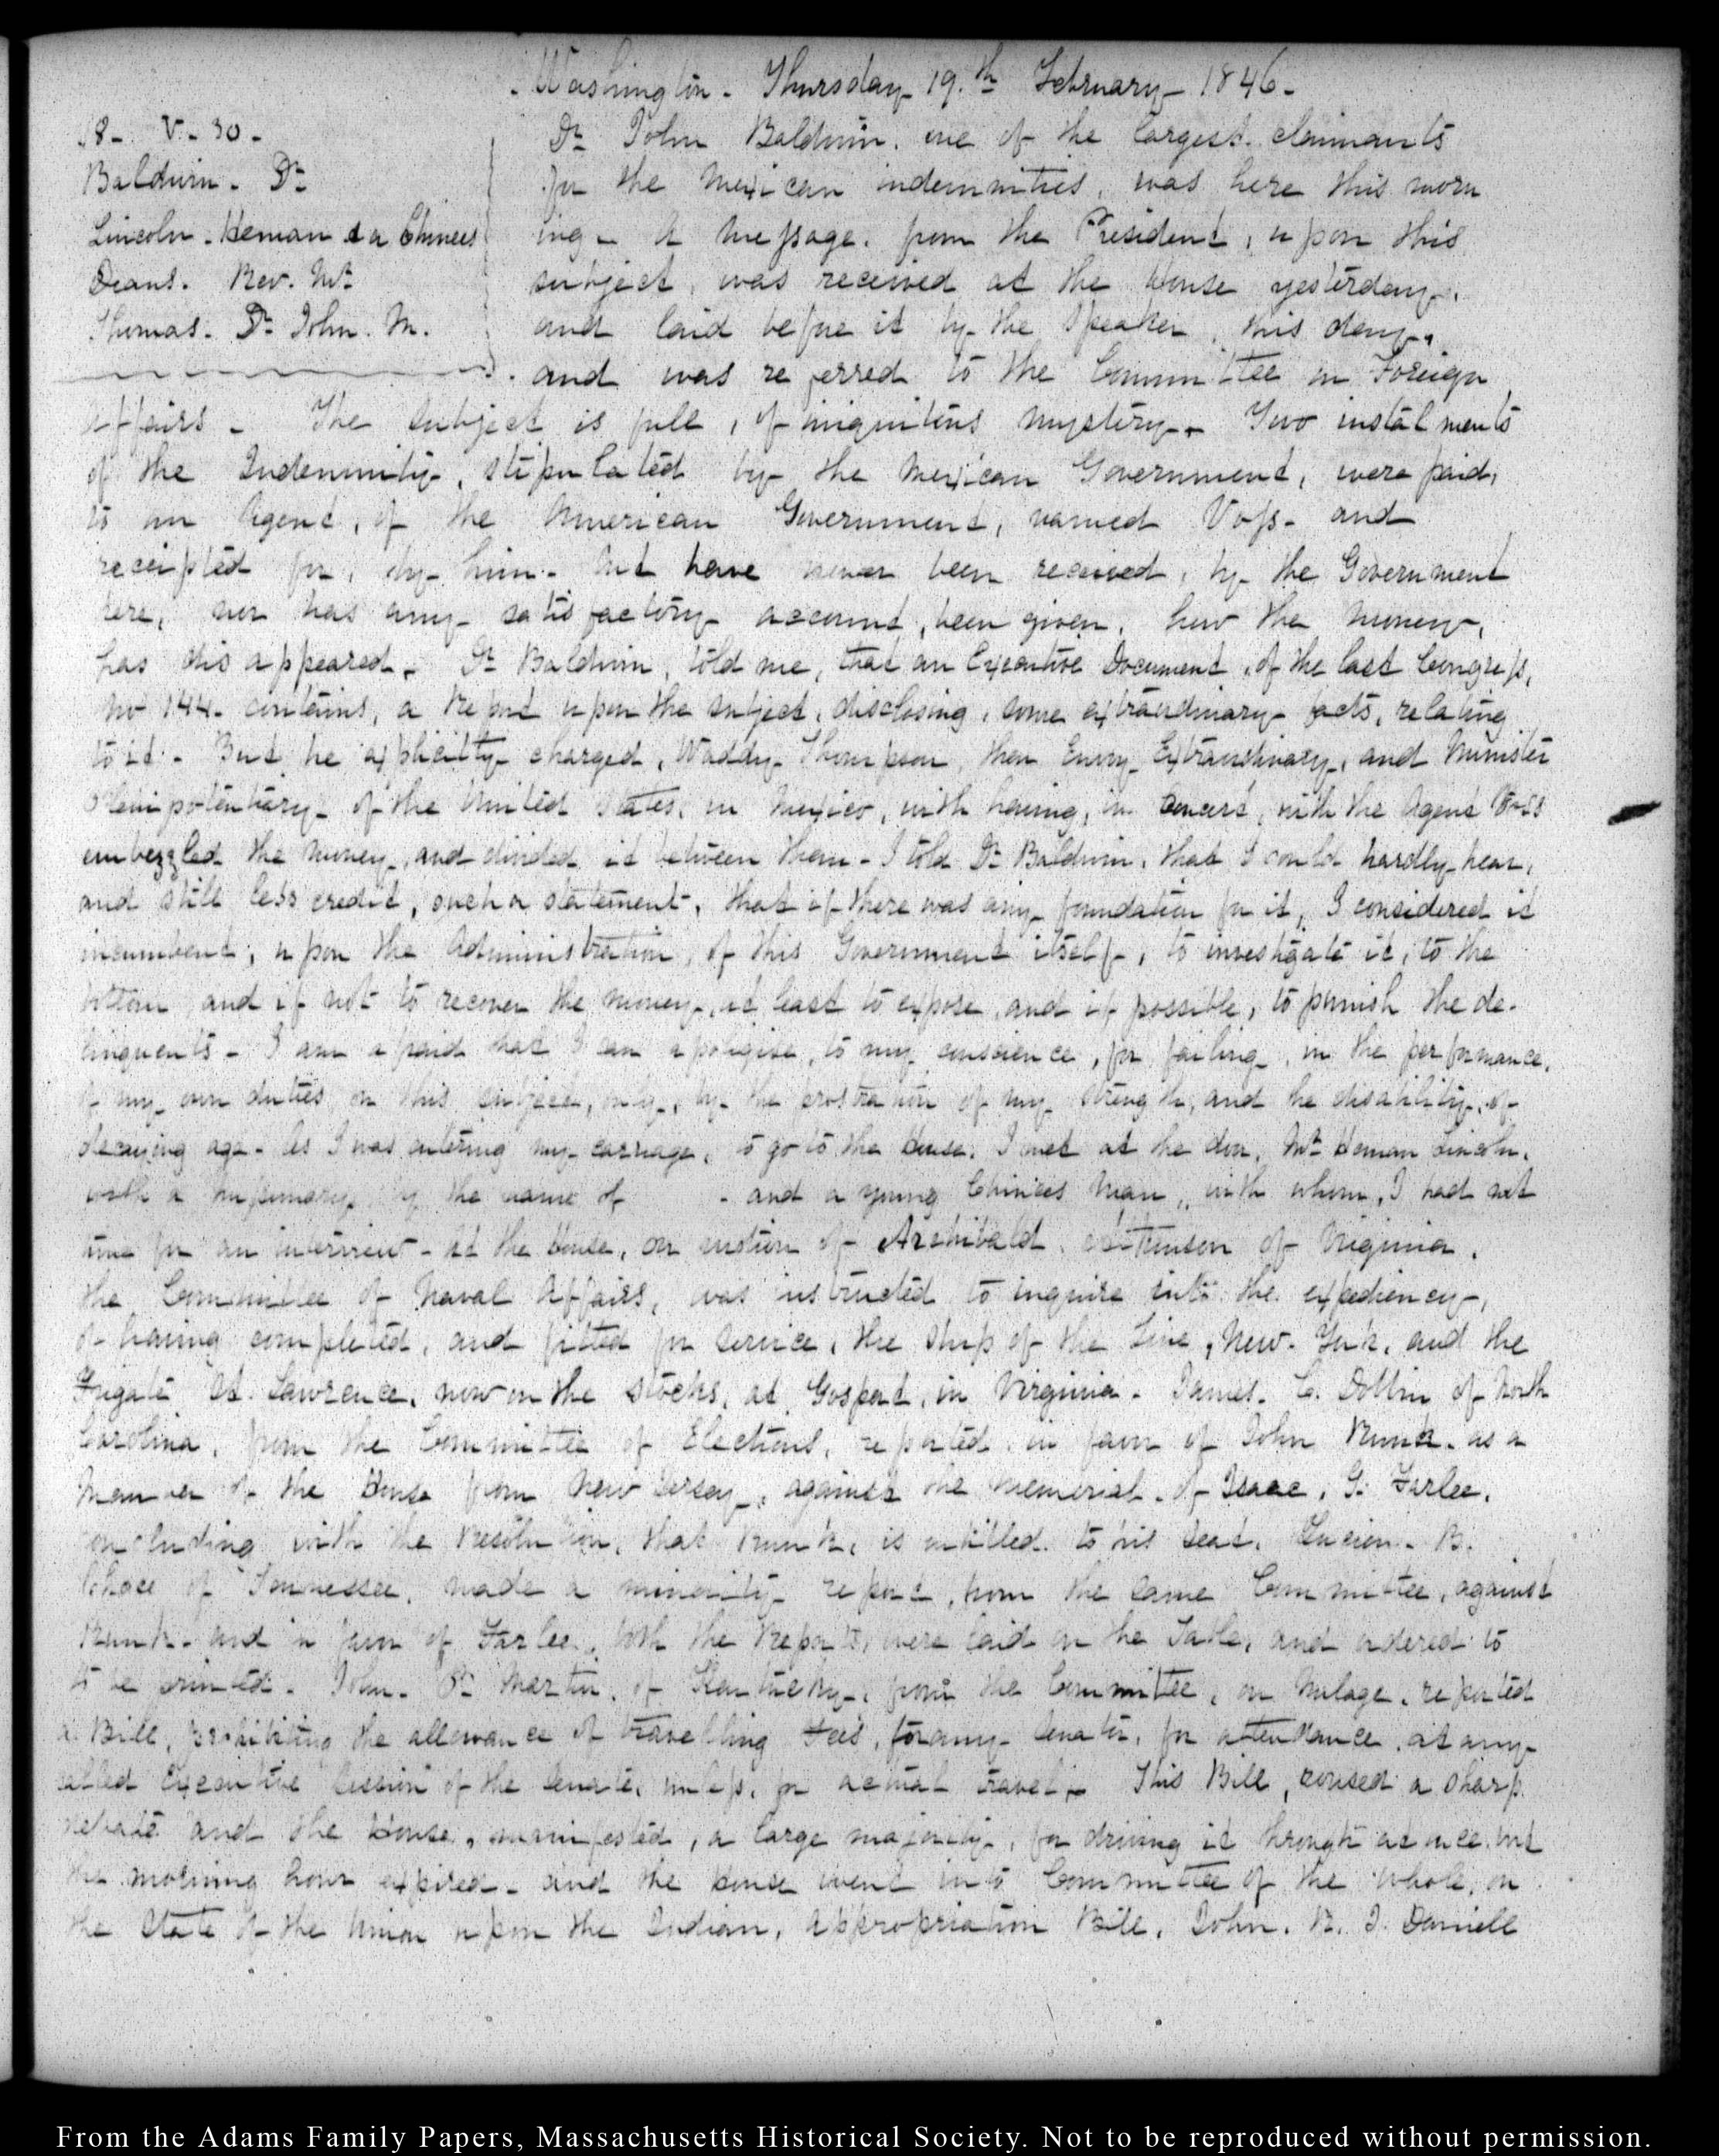 Washington. Thursday 19.th February 1846.
18. V. 30.
Baldwin. Dr
Lincoln. Heman & a Chinees
Deans. Rev. Mr
Thomas. Dr John. M.
Dr John Baldwin. one of the largest claimants
for the Mexican indemnities, was here this morn
ing. A Message. from the President, upon this
subject, was received at the House yesterday,
and laid before it by the Speaker, this day,
and was referred to the Committee on Foreign
Affairs. The subject is full, of iniquitous mystery. Two instalments
of the Indemnity, stipulated by the Mexican Government, were paid,
to an Agent, of the American Government, named Voss. and
receipted for, by him. but have never been received, by the Government
here, nor has any satisfactory account, been given, how the money,
has disappeared. Dr Baldwin, told me, that an Executive Document, of the last Congress,
No 144. contains, a Report upon the subject, disclosing, some extraordinary facts, relating
to it. But he explicitly charged, Waddy Thompson, then Envoy Extraordinary, and Minister
Plenipotentiary of the United States, in Mexico, with having, in concert, with the Agent Voss
embezzled the money, and divided it between them. I told Dr Baldwin, that I could hardly hear,
and still less credit, such a statement, that if there was any foundation for it, I considered it
incumbent, upon the Administration, of this Government itself, to investigate it, to the
bottom and if not to recover the money, at least to expose, and if possible, to punish the de-
linquents. I am afraid that I can apologise, to my conscience, for failing, in the performance,
of my own duties on this subject, only, by the prostration of my strength, and the disability, of
decaying age. As I was entering my carriage, to go to the House. I met at the door, Mr Heman Lincoln.
with a missionary, by the name of . and a young Chinees man, with whom, I had not
time for an interview. At the House, on motion of Archibald Atkinson of Virginia,
the Committee of Naval Affairs, was instructed to inquire into the expediency,
of having completed, and fitted for service, the ship of the Line, New-York, and the
Frigate St. Lawrence, now on the stocks, at Gosport, in Virginia. James. C. Dobbin of North
Carolina, from the Committee of Elections, reported in favor of John Runk. as a
Member of the House from New Jersey, against the memorial of Isaac, G. Farlee,
concluding with the Resolution, that Runk, is entitled to his seat. Lucien. B.
Chace of Tennessee, made a minority report, from the same Committee, against
Runk. and in favor of Farlee, both the Reports, were laid on the Table, and ordered to
to be printed. John. P. Martin, of Kentucky, from the Committee, on Mileage, reported
a Bill, prohibiting the allowance of travelling Fees, for any Senator, for attendance, at any
called Executive Session of the Senate, unless, for actual travel. This Bill, roused a sharp
debate and the House, manifested, a large majority, for driving it through at once. but
the morning hour expired. and the House went into Committee of the whole, on
the State of the Union upon the Indian, Appropriation Bill. John. R. J. Daniell
From the Adams Family Papers, Massachusetts Historical Society. Not to be reproduced without permission.